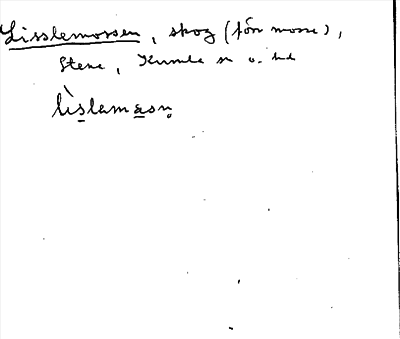 Lisslemossen, skog (förr mosse),
Stene, Kumla sn o. hd
lìslamasn̥